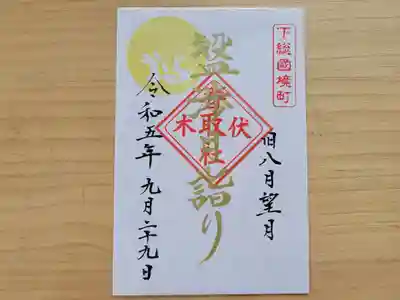 下総國境町
旧八月望月
月詣り
伏木
香取社
令和五年 九月二十九日